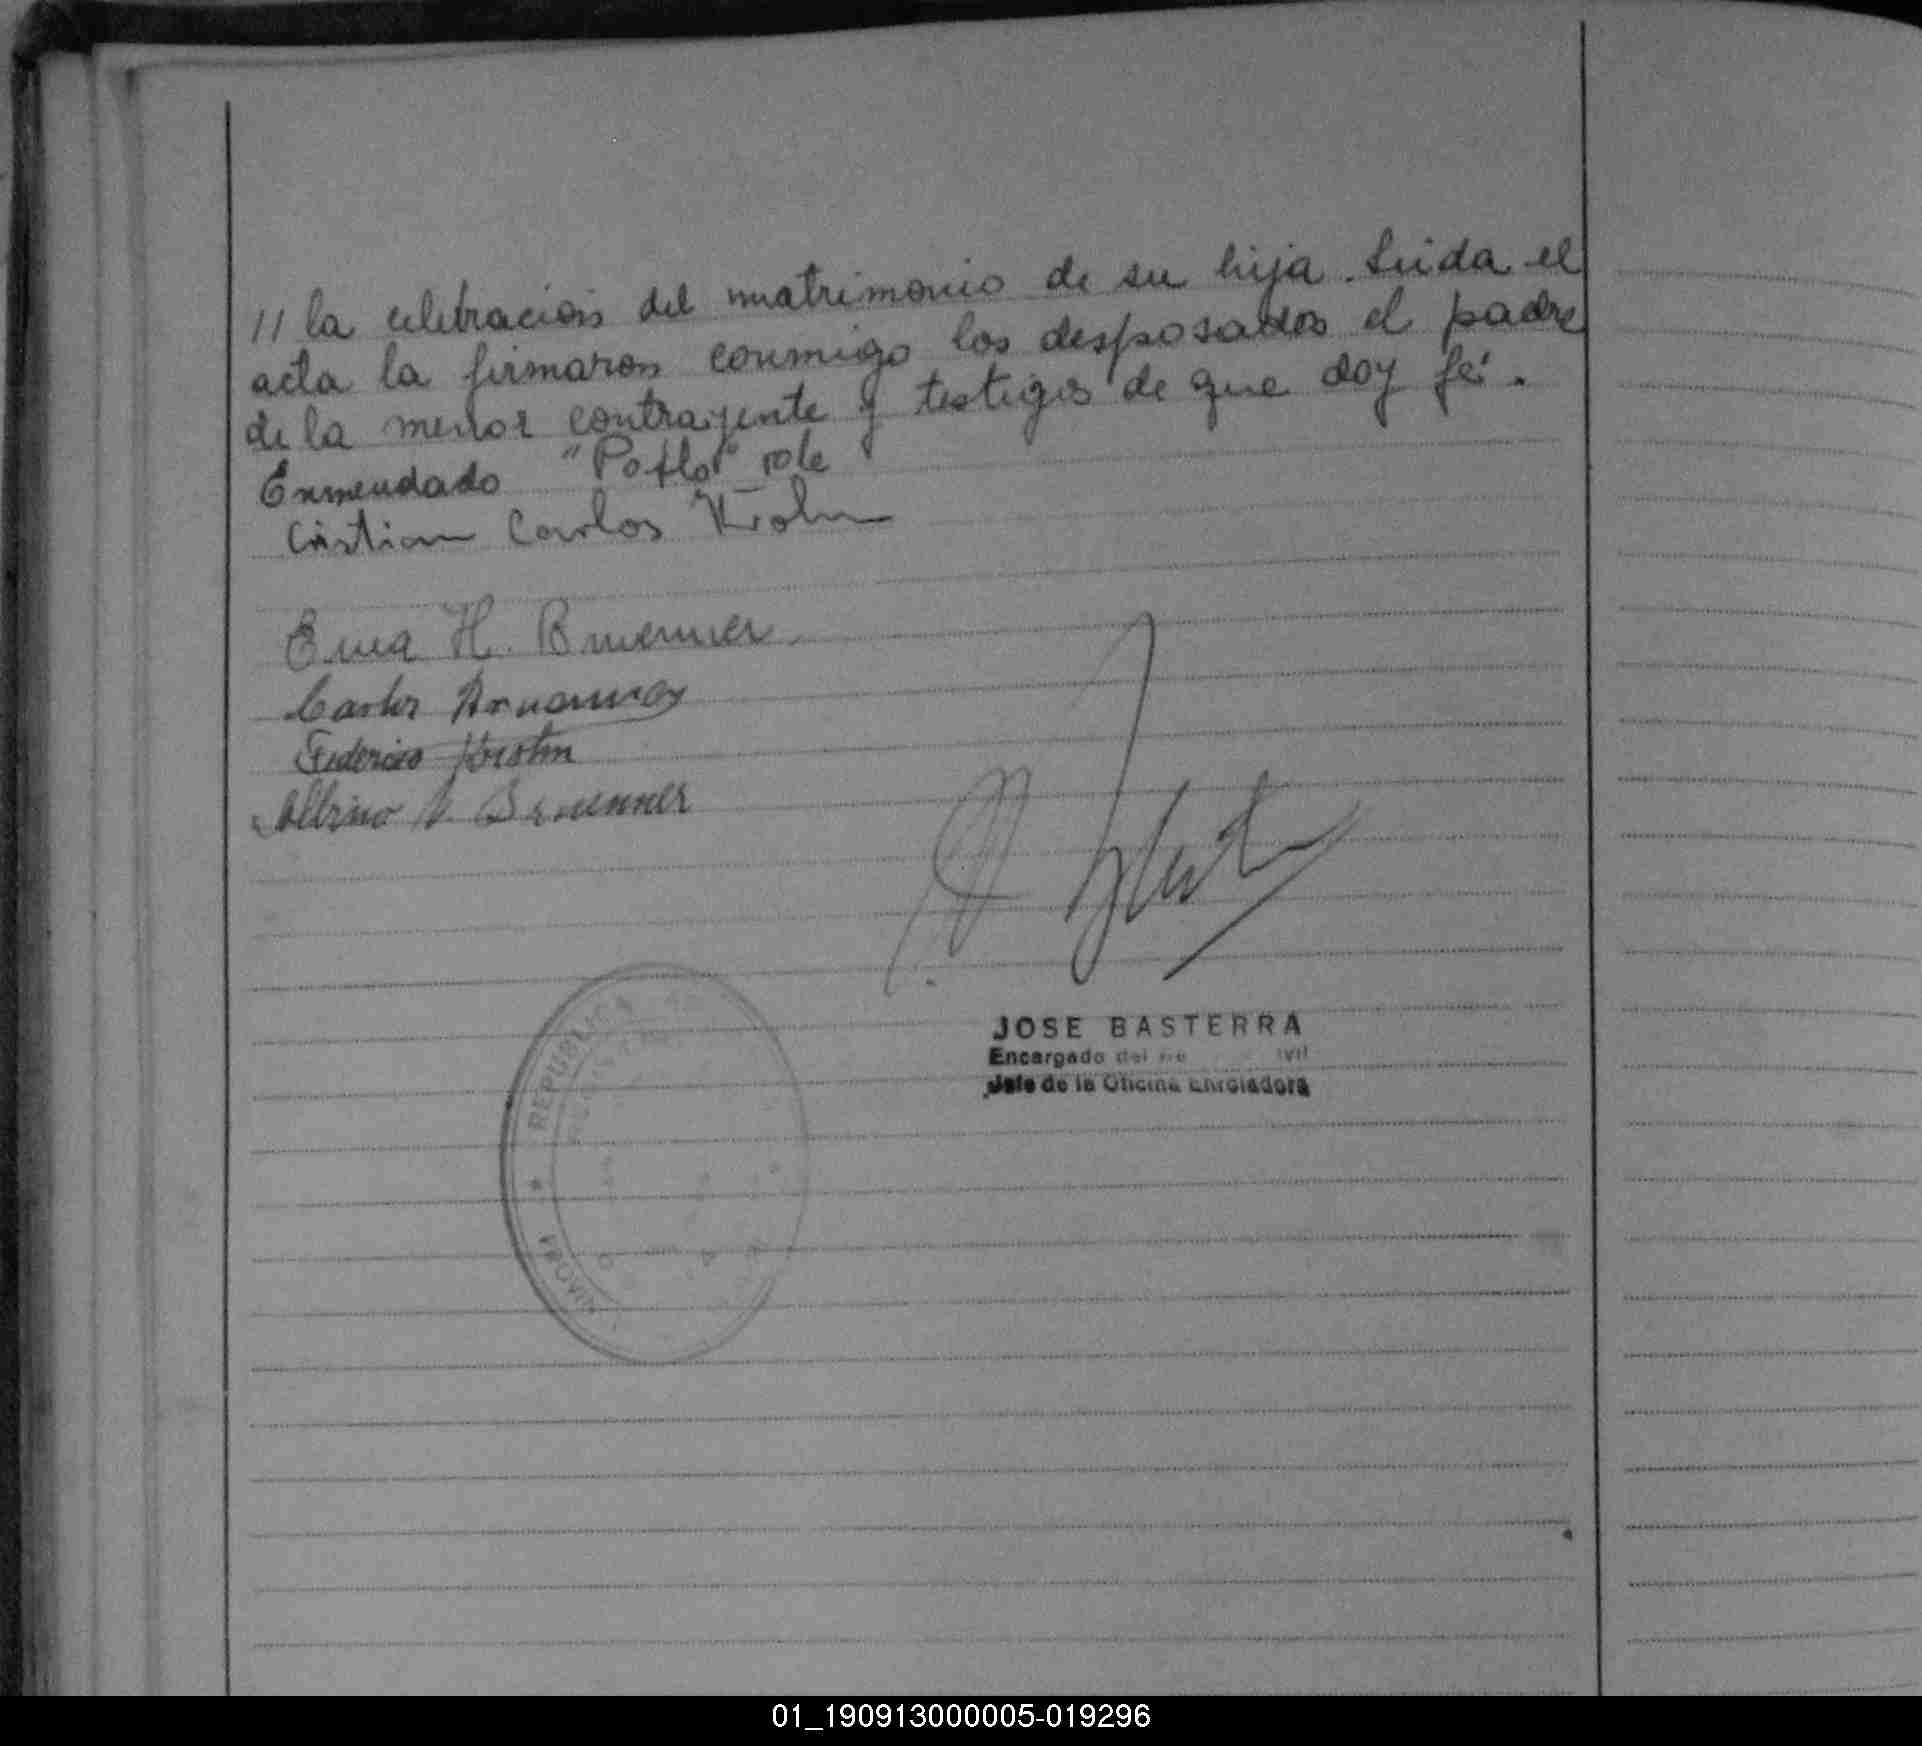 // la celebración del matrimonio de su hija. Leida el
acta la firmaron conmigo los desposados el padre
de la menor contrayente y testigos de que doy fé.
Enmendado "Potlo" vale
Cristian Carlos Krohn
Erna H. Bruenner
Carlos Bruenner
Federico Krohn
Albino A. Bruenner
JOSE BASTERRA
Encargado del ivil
Jefe de la Oficina Enroladora
REPUBLICA
PROVIN
01_190913000005-019296